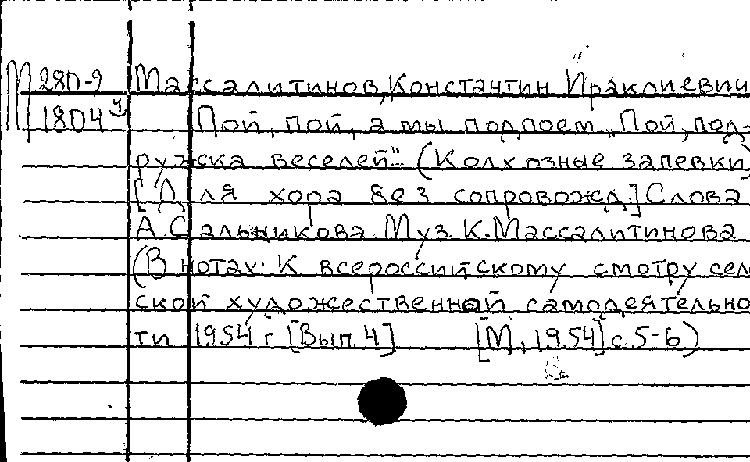 М 28П-9 Массалитинов, Константин Ираклиевич
1804 Пой, пой, а мы подпоем „Пой, под-
ружка веселей"... (Колхозные запевки)
[Для хора без сопровожд.] Слова
А. Сальникова. Муз. К. Массалитинова
(В нотах: К всероссийскому смотру сель
ской художественной самодеятельно
ти 1954 г. [Вып. 4] [М., 1954] с. 5-6)